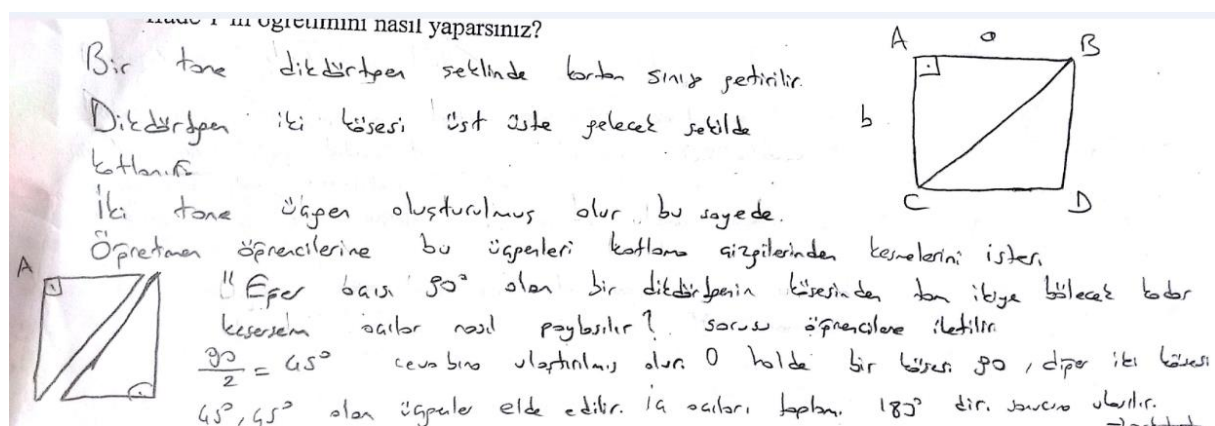 İfade 1'in öğretimini nasıl yaparsınız?
Bir tane dikdörtgen şeklinde karton sınıfa getirilir.
Dikdörtgen iki köşesi üst üste gelecek şekilde
katlanır.
İki tane üçgen oluşturulmuş olur bu sayede.
Öğretmen öğrencilerine bu üçgenleri katlama çizgilerinden kesmelerini ister.
"Eğer açısı 90° olan bir dikdörtgenin köşesinden tam ikiye bölecek kadar
kesersem açılar nasıl paylaşılır? sorusu öğrencilere iletilir.
90/2 = 45° cevabına ulaştırılmış olur. O halde bir köşesi 90, diğer iki köşesi
45°, 45° olan üçgenler elde edilir. İç açıları toplamı 180° dir. sonucuna ulaşılır.
A a B
b
C D
A